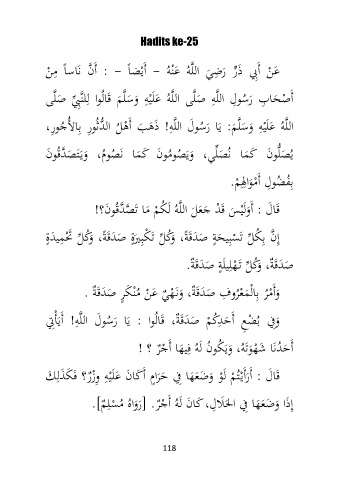 Hadits ke-25
عَنْ أَبِي ذَرٍّ رَضِيَ اللَّهُ عَنْهُ – أَيْضاً – : أَنَّ نَاساً مِنْ
أَصْحَابِ رَسُولِ اللَّهِ صَلَّى اللَّهُ عَلَيْهِ وَسَلَّمَ قَالُوا لِلنَّبِيِّ صَلَّى
اللَّهُ عَلَيْهِ وَسَلَّمَ: يَا رَسُولَ اللَّهِ! ذَهَبَ أَهْلُ الدُّثُورِ بِالأُجُورِ،
يُصَلُّونَ كَمَا نُصَلِّي، وَيَصُومُونَ كَمَا نَصُومُ، وَيَتَصَدَّقُونَ
بِفُضُولِ أَمْوَالِهِمْ.
قَالَ : أَوَلَيْسَ قَدْ جَعَلَ اللَّهُ لَكُمْ مَا تَصَّدَّقُونَ؟!
إِنَّ بِكُلِّ تَسْبِيحَةٍ صَدَقَةً، وَكُلِّ تَكْبِيرَةٍ صَدَقَةً، وَكُلِّ تَحْمِيدَةٍ
صَدَقَةٌ، وَكُلِّ تَهْلِيلَةٍ صَدَقَةٌ.
وَأَمْرٌ بِالْمَعْرُوفِ صَدَقَةٌ، وَنَهْيٌ عَنْ مُنْكَرٍ صَدَقَةٌ .
وَفِي بُضْعِ أَحَدِكُمْ صَدَقَةٌ، قَالُوا : يَا رَسُولَ اللَّهِ! أَيَأْتِي
أَحَدُنَا شَهْوَتَهُ، وَيَكُونُ لَهُ فِيهَا أَجْرٌ ؟ !
قَالَ : أَرَأَيْتُمْ لَوْ وَضَعَهَا فِي حَرَامٍ أَكَانَ عَلَيْهِ وِزْرٌ؟ فَكَذَلِكَ
إِذَا وَضَعَهَا فِي الْحَلَالِ، كَانَ لَهُ أَجْرٌ. [رَوَاهُ مُسْلِمٌ].
118